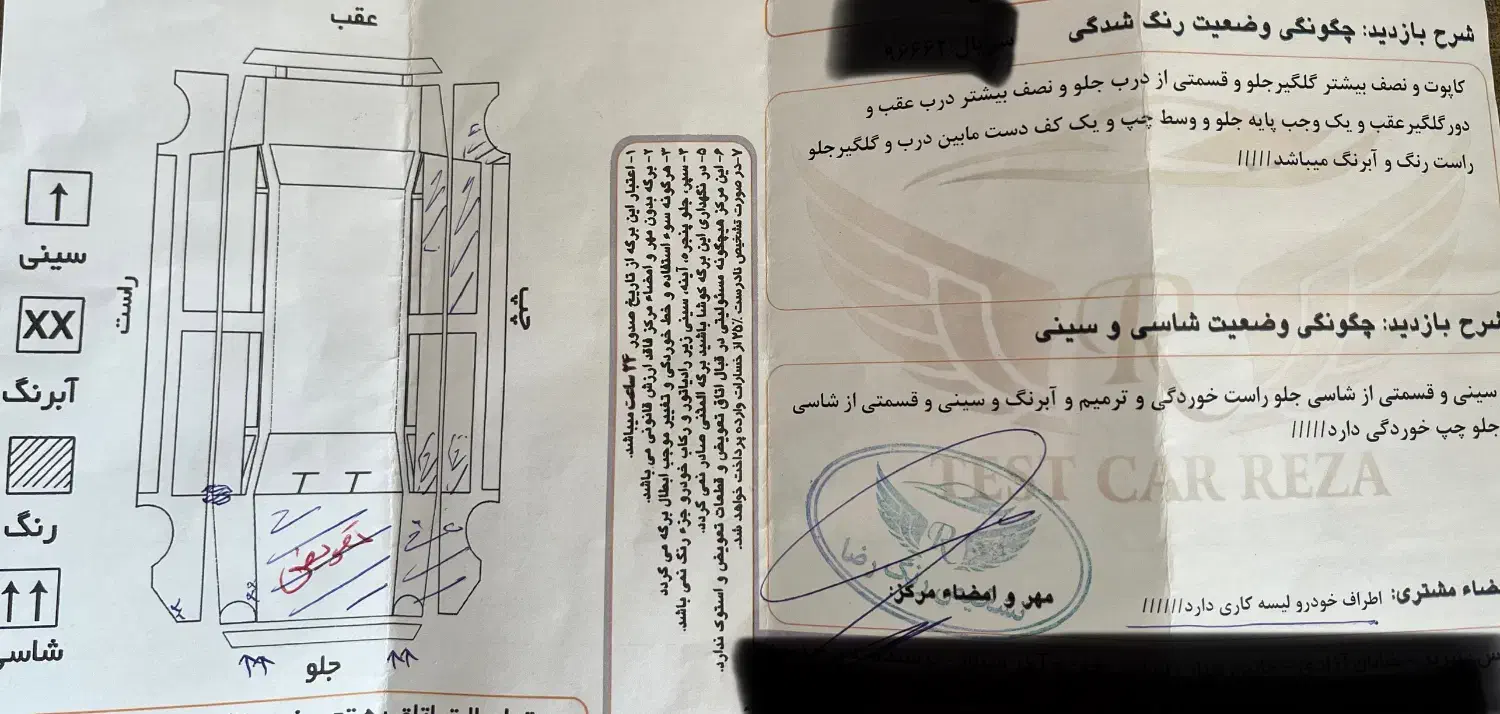 شرح بازدید: چگونگی وضعیت رنگ شدگی
سریال ۹۶۶۶۲
کاپوت و نصف بیشتر گلگیرجلو و قسمتی از درب جلو و نصف بیشتر درب عقب و
دورگلگیرعقب و یک وجب پایه جلو و وسط چپ و یک کف دست مابین درب و گلگیرجلو
راست رنگ و آبرنگ میباشد/////
شرح بازدید: چگونگی وضعیت شاسی و سینی
سینی و قسمتی از شاسی جلو راست خوردگی و ترمیم و آبرنگ و سینی و قسمتی از شاسی
جلو چپ خوردگی دارد/////
TEST CAR REZA
مهر و امضاء مرکز:
ضاء مشتری: اطراف خودرو لیسه کاری دارد//////
۱- اعتبار این برگه از تاریخ صدور ۲۴ ساعت میباشد.
۲- برگه بدون مهر و امضاء مرکز فاقد ارزش قانونی می باشد.
۳- هرگونه سوء استفاده و خط خوردگی و تغییر موجب ابطال برگه می گردد
۴- سپر، جلو پنجره، آینه، سینی زیر رادیاتور و رکاب خودرو جزء رنگ نمی باشد.
۵- در نگهداری این برگه کوشا باشید برگه المثنی صادر نمی گردد.
۶- این مرکز هیچگونه مسئولیتی در قبال اتاق تعویض و قطعات تعویض و استوک ندارد.
۷- در صورت تشخیص نادرست ۲۵٪ از خسارات وارده پرداخت خواهد شد.
عقب
راست
چپ
جلو
تعویض
سینی
XX
آبرنگ
رنگ
شاسی